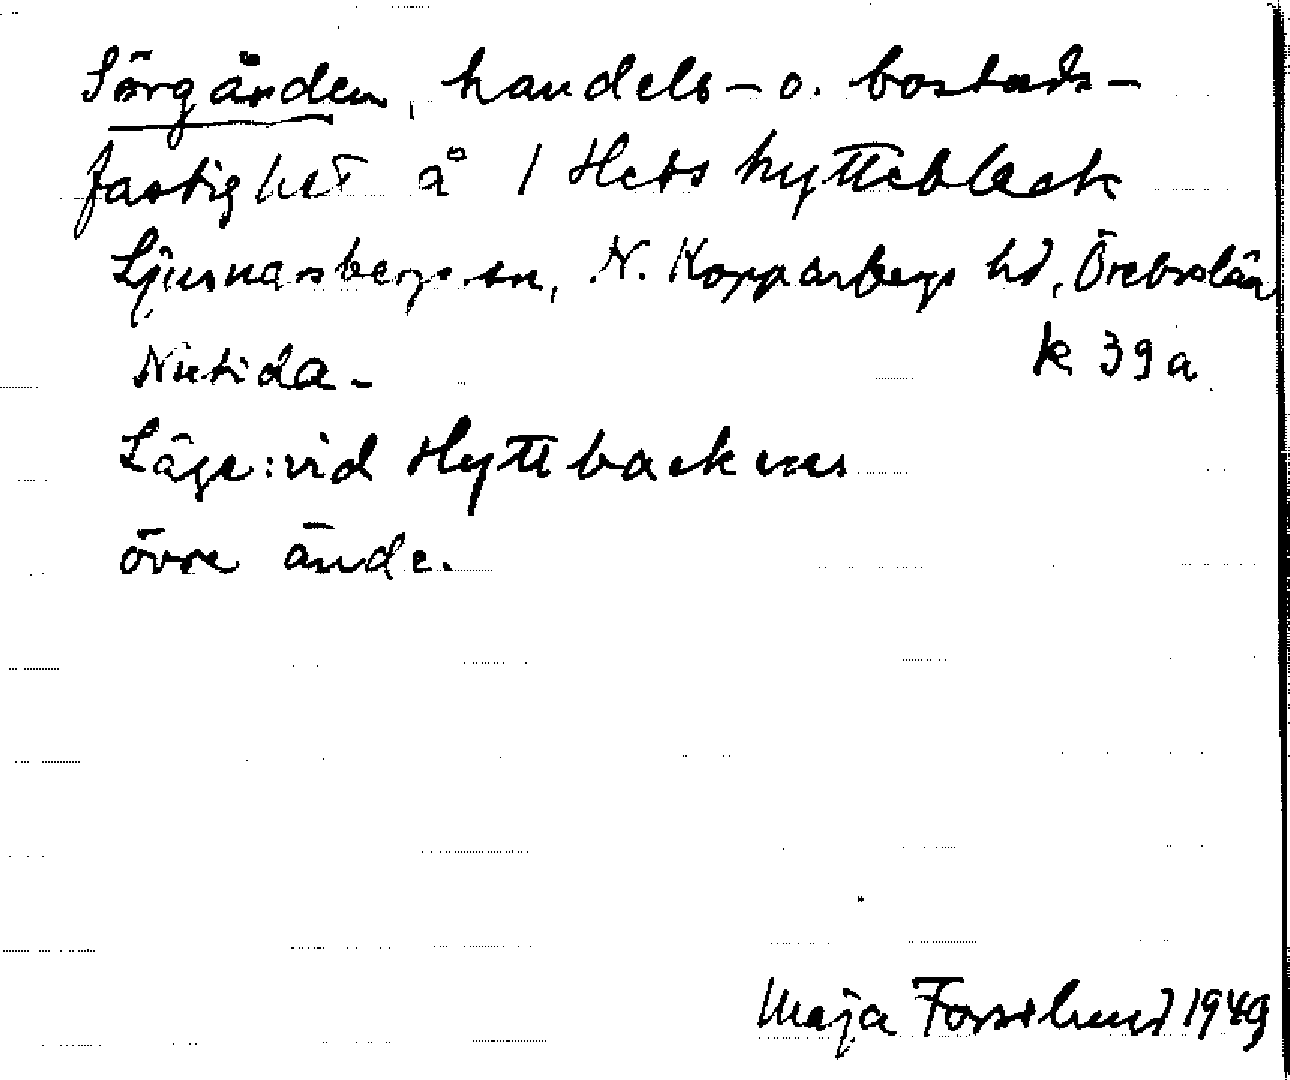 Sörgänden, handels- o. bostads-
fastighet å 1 Hels hyttebleck
Ljusnarsbergs sn, N. Kopparbergs hd, Örebro län
Nutida - k 39 a
Läge: vid Hyttbackens
övre ände.
Maja Forsslund 1949